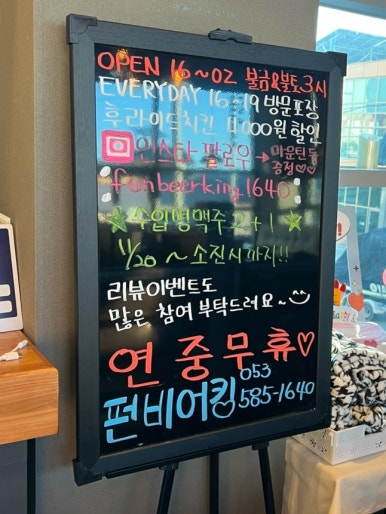 OPEN 16~02 불금&불토 3시
EVERYDAY 16~19 방문포장
후라이드치킨 4,000원 할인
인스타 팔로우 → 마운틴듀
증정♡♡
funbeerking1640
★수입병맥주 2+1 ★
11/20 ~ 소진시까지!!
리뷰이벤트도
많은 참여 부탁드려요~
연중무휴♡
펀비어킹 053
585-1640